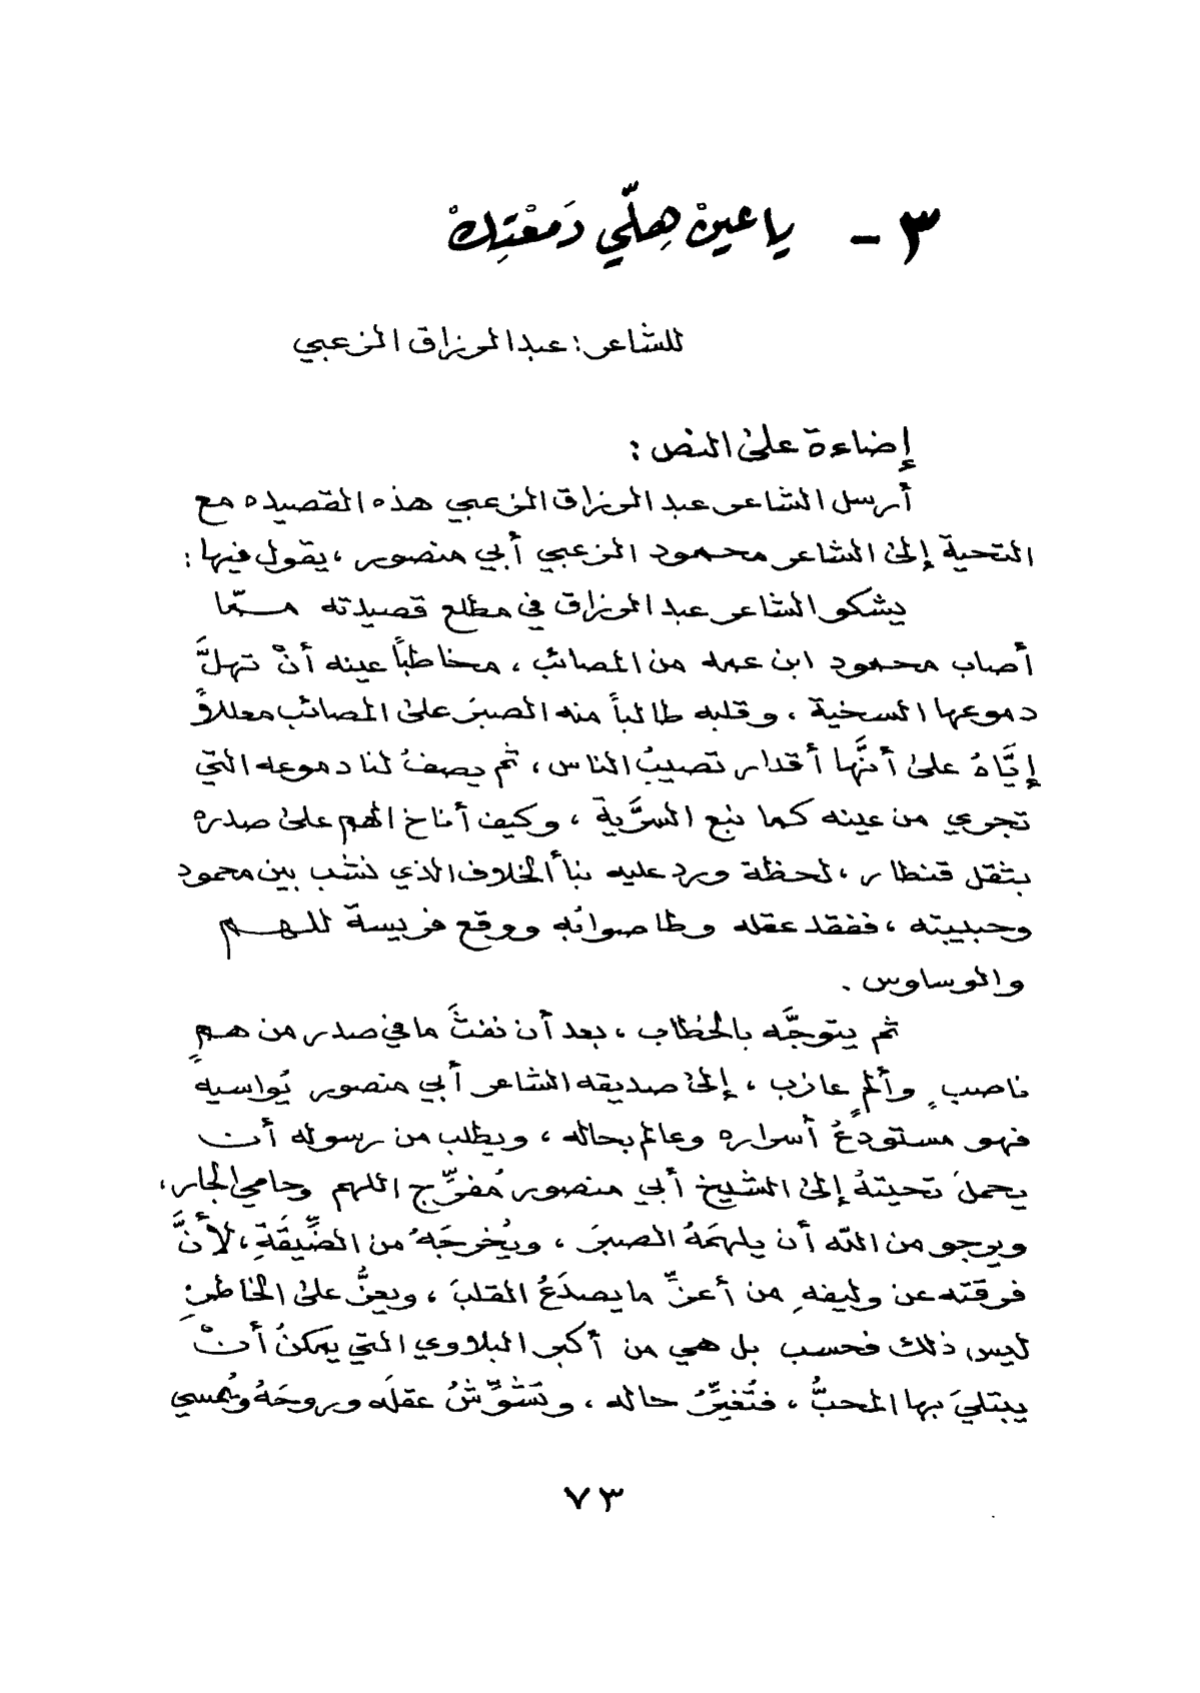 ٣ - يا عينْ هِلّي دَمعْتِكْ
للشاعر : عبد الرزاق الزعبي
إضاءة على النص :
أرسل الشاعر عبد الرزاق الزعبي هذه القصيده مع
التحية إلى الشاعر محمود الزعبي أبي منصور ، يقول فيها :
يشكو الشاعر عبد الرزاق في مطلع قصيدته ممّا
أصاب محمود ابن عمه من المصائب ، مخاطباً عينه أنْ تهلَّ
دموعها السخية ، وقلبه طالباً منه الصبرَ على المصائب معللاً
إيَّاهُ على أنَّها أقدار تصيبُ الناس ، ثم يصفُ لنا دموعه التي
تجري من عينه كما نبع السرَّية ، وكيف أناخ الهم على صدره
بثقل قنطار ، لحظة ورد عليه نبأ الخلاف الذي نشب بين محمود
وحبيبته ، ففقد عقله وطا صوابُه ووقع فريسة للهم
والوساوس .
ثم يتوجَّه بالخطاب ، بعد أن نفثَ ما في صدر من همٍ
ناصبٍ وألمٍ عازب ، إلى صديقه الشاعر أبي منصور يُواسيه
فهو مستودعُ أسراره وعالم بحاله ، ويطلب من رسوله أن
يحملَ تحيتهُ إلى الشيخ أبي منصور مُفرِّج اللهم وحامي الجار ،
ويرجو من الله أن يلهمَهُ الصبرَ ، ويُخرجَهُ من الضِّيقَةِ ، لأنَّ
فرقته عن وليفهِ من أعزِّ ما يصدَعُ القلبَ ، ويعزُّ على الخاطرِ
ليس ذلك فحسب بل هي من أكبر البلاوي التي يمكنُ أنْ
يبتليَ بها المحبُّ ، فتُغيِّرُ حاله ، وتَشوِّشُ عقلَه وروحَهُ ويُمسي
٧٣